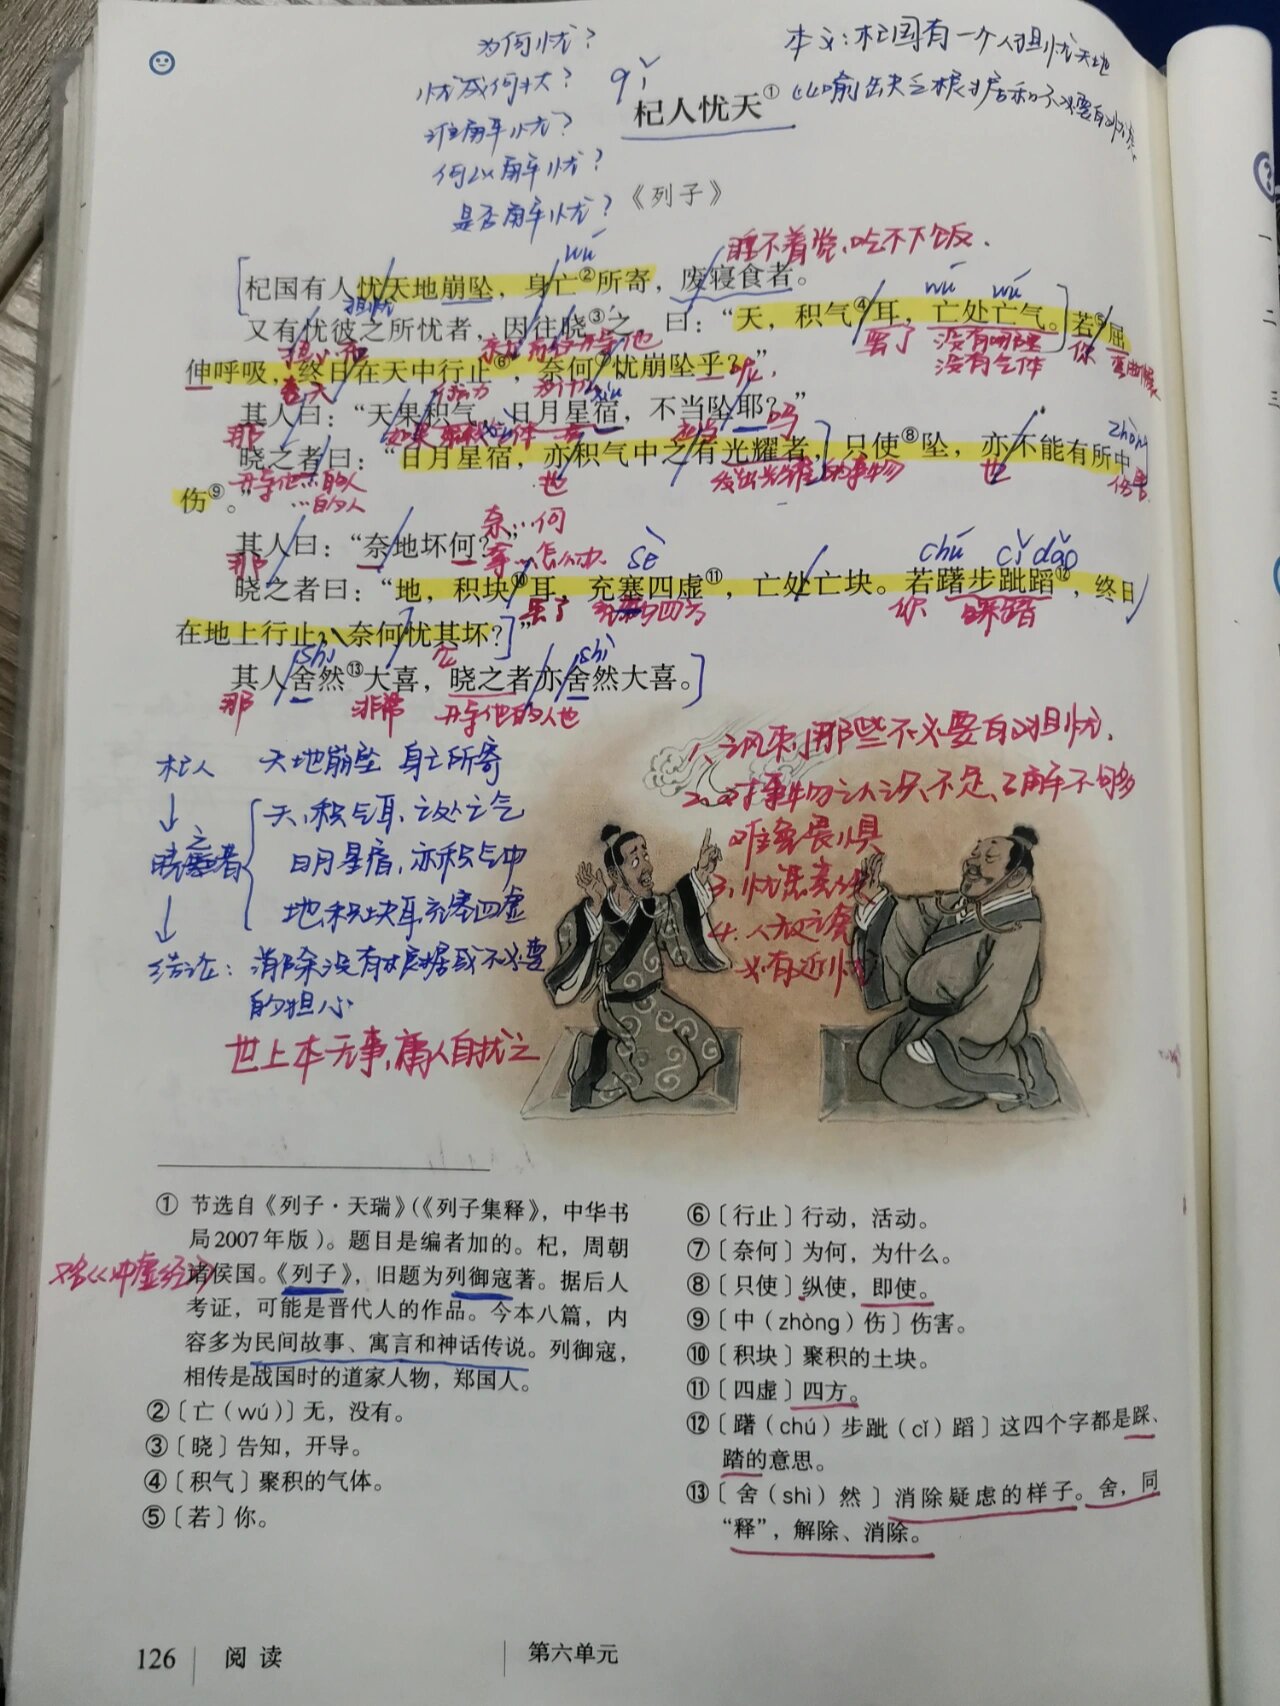 为何忧?
忧成何状?
谁解忧?
何以解忧?
是否解忧?
本义:杞国有一个人担忧天地
比喻缺乏根据和不必要的忧虑
qǐ
杞人忧天①
《列子》
睡不着觉,吃不下饭.
wú
杞国有人忧天地崩坠,身亡②所寄,废寝食者。
担忧
wú wú
又有忧彼之所忧者,因往晓③之,曰:“天,积气④耳,亡处亡气。若⑤屈
罢了 没有地方 你
没有气体
伸呼吸,终日在天中行止⑥,奈何⑦忧崩坠乎?”
整天 行动 为什么 呢
xiù
其人曰:“天果积气,日月星宿,不当坠耶?”
那 如果 吗
zhòng
晓之者曰:“日月星宿,亦积气中之有光耀者,只使⑧坠,亦不能有所中
开导他的人 也 发出光耀的事物 也 伤害
…的人
伤⑨。”
奈…何
其人曰:“奈地坏何?”
那 拿…怎么办
sè chú cǐ dǎo
晓之者曰:“地,积块⑩耳,充塞四虚⑪,亡处亡块。若躇步跐蹈⑫,终日
罢了 四方 你 踩踏
在地上行止,奈何忧其坏?”
shì shì
其人舍然⑬大喜,晓之者亦舍然大喜。
那 非常 开导他的人也
杞人 天地崩坠 身亡所寄
晓之者 天,积气耳,亡处亡气
日月星宿,亦积气中
地,积块耳,充塞四虚
结论: 消除没有根据或不必要
的担心
世上本无事,庸人自扰之
1、讽刺那些不必要的担忧.
2、对事物认识不足、了解不够多
唯会畏惧
3、忧患意
4、人无远虑
必有近忧
① 节选自《列子·天瑞》(《列子集释》,中华书
局2007年版)。题目是编者加的。杞,周朝
又名《冲虚经》
诸侯国。《列子》,旧题为列御寇著。据后人
考证,可能是晋代人的作品。今本八篇,内
容多为民间故事、寓言和神话传说。列御寇,
相传是战国时的道家人物,郑国人。
②〔亡(wú)〕无,没有。
③〔晓〕告知,开导。
④〔积气〕聚积的气体。
⑤〔若〕你。
⑥〔行止〕行动,活动。
⑦〔奈何〕为何,为什么。
⑧〔只使〕纵使,即使。
⑨〔中(zhòng)伤〕伤害。
⑩〔积块〕聚积的土块。
⑪〔四虚〕四方。
⑫〔躇(chú)步跐(cǐ)蹈〕这四个字都是踩、
踏的意思。
⑬〔舍(shì)然〕消除疑虑的样子。舍,同
“释”,解除、消除。
126 阅读 第六单元